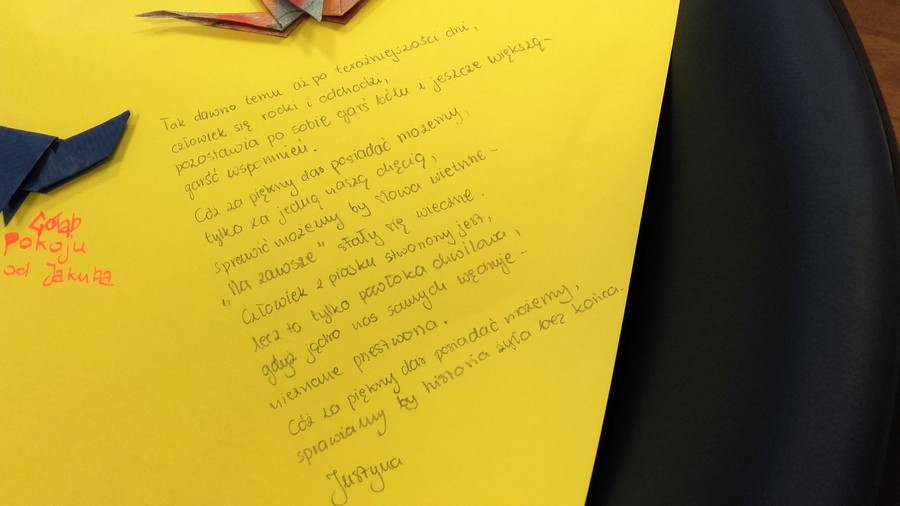 Tak dawno temu aż po teraźniejszości dni,
człowiek się rodzi i odchodzi,
pozostawia po sobie garś bólu i jeszcze większą-
garść wspomnień.
Cóż za piękny dar posiadać możemy,
tylko za jedną naszą chęcią,
sprawić możemy by słowa wietrzne-
"Na zawsze" stały się wieczne.
Człowiek z piasku stworzony jest,
lecz to tylko powłoka chwilowa,
gdyż jądro nas samych wędruje-
nieznane przestworza.
Cóż za piękny dar posiadać możemy,
sprawiamy by historia żyła bez końca.
Justyna
Gołąb
Pokoju
od Jakuba